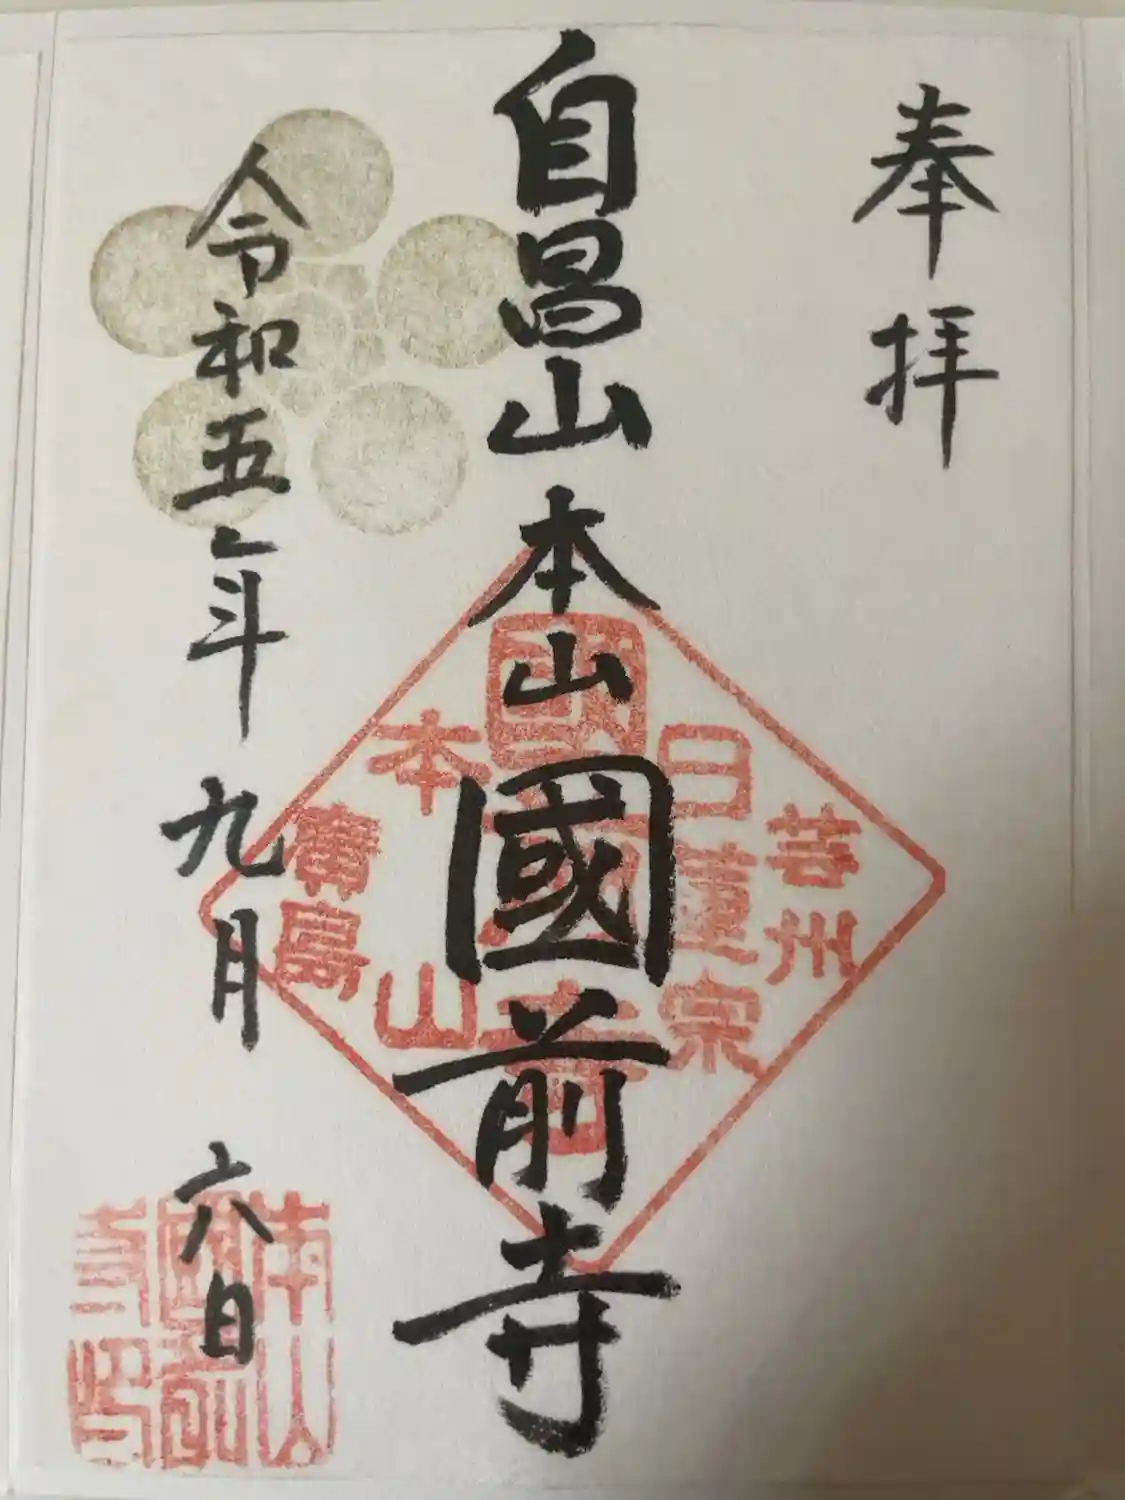 奉拝
自昌山 本山 國前寺
令和五年 九月 六日
芸州
日蓮宗
國前寺
本山
廣島